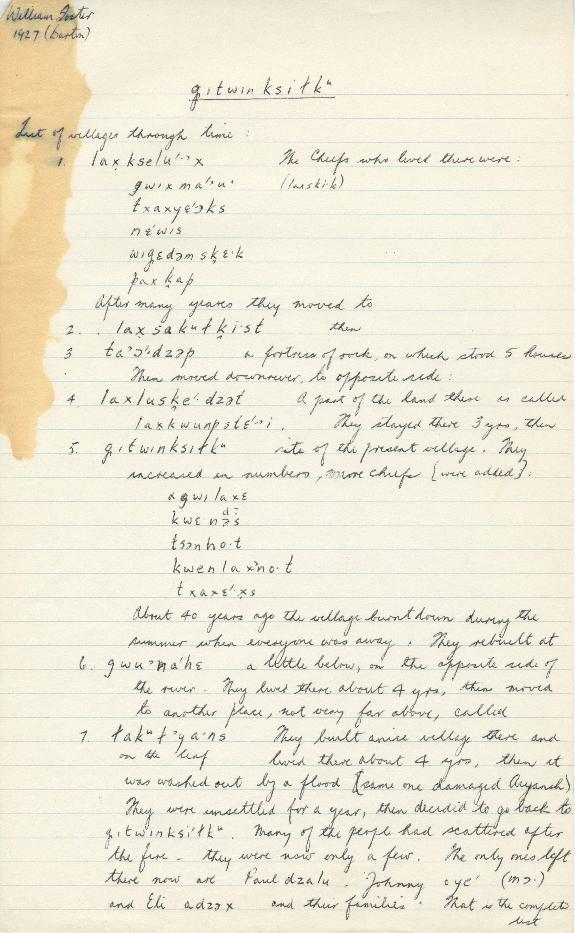 William Foster
1927 (Barton)
gitwinksiłkᵘ
List of villages through time :
1. lax̣kselu'ˀx The Chiefs who lived there were :
gwıxma'ˀu· (laxskik)
txaxyɛ'ɔks
nɛ'wis
wigɛdəmsḳɛ·k
paxḳap
After many years they moved to
2. laxsakᵘłḳi·st then
3 ta'ɔ'dzəp a fortress of rock, on which stood 5 houses
Then moved downriver, to opposite side :
4. laxlusḳe'·dzət A part of the land there is called
laxkwunpstɛ'ˀi. They stayed there 3 yrs, then
5. gitwinksiłkᵘ site of the present village. They
increased in numbers, more chiefs [were added] :
agwilaxɛ
kwɛnəs
tsənho·t
kwenlaxˀno·t
txaxɛ'·xs
About 40 years ago the village burnt down during the
summer when everyone was away. They rebuilt at
6. gwuˀna'hɛ a little below, on the opposite side of
the river. They lived there about 4 yrs, then moved
to another place, not very far above, called
7. łakᵘłˀya·ns They built a nice village there and
on the leaf lived there about 4 yrs, then it
was washed out by a flood (same one damaged Aiyansh)
They were unsettled for a year, then decided to go back to
gitwinksiłkᵘ. Many of the people had scattered after
the fire - they were now only a few. The only ones left
there now are Paul dzalu. Johnny oyɛ' (mɔ·)
and Eli adzəx and their families. That is the complete
list